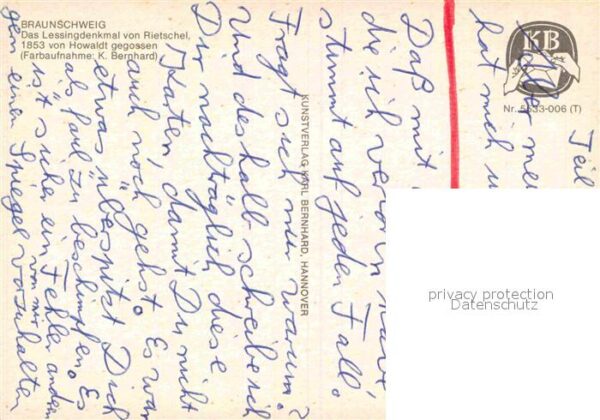 BRAUNSCHWEIG
Das Lessingdenkmal von Rietschel,
1853 von Howaldt gegossen
(Farbaufnahme: K. Bernhard)
KUNSTVERLAG KARL BERNHARD, HANNOVER
KB
Nr. 5533-006 (T)
Teil
mei
hat mich u
Daß mit
die ich verlor'n wäre
stimmt auf jeden Fall!
Fragt sich nur warum?
Und deshalb schreibe ich
Dir nachträglich diese
Karten, damit Du nicht
auch noch gehst. Es war
etwas überspitzt Dich
als faul zu beschimpfen. Es
ist sicher ein Fehler
von mir
anderen
gen einen Spiegel vorzuhalten
privacy protection
Datenschutz